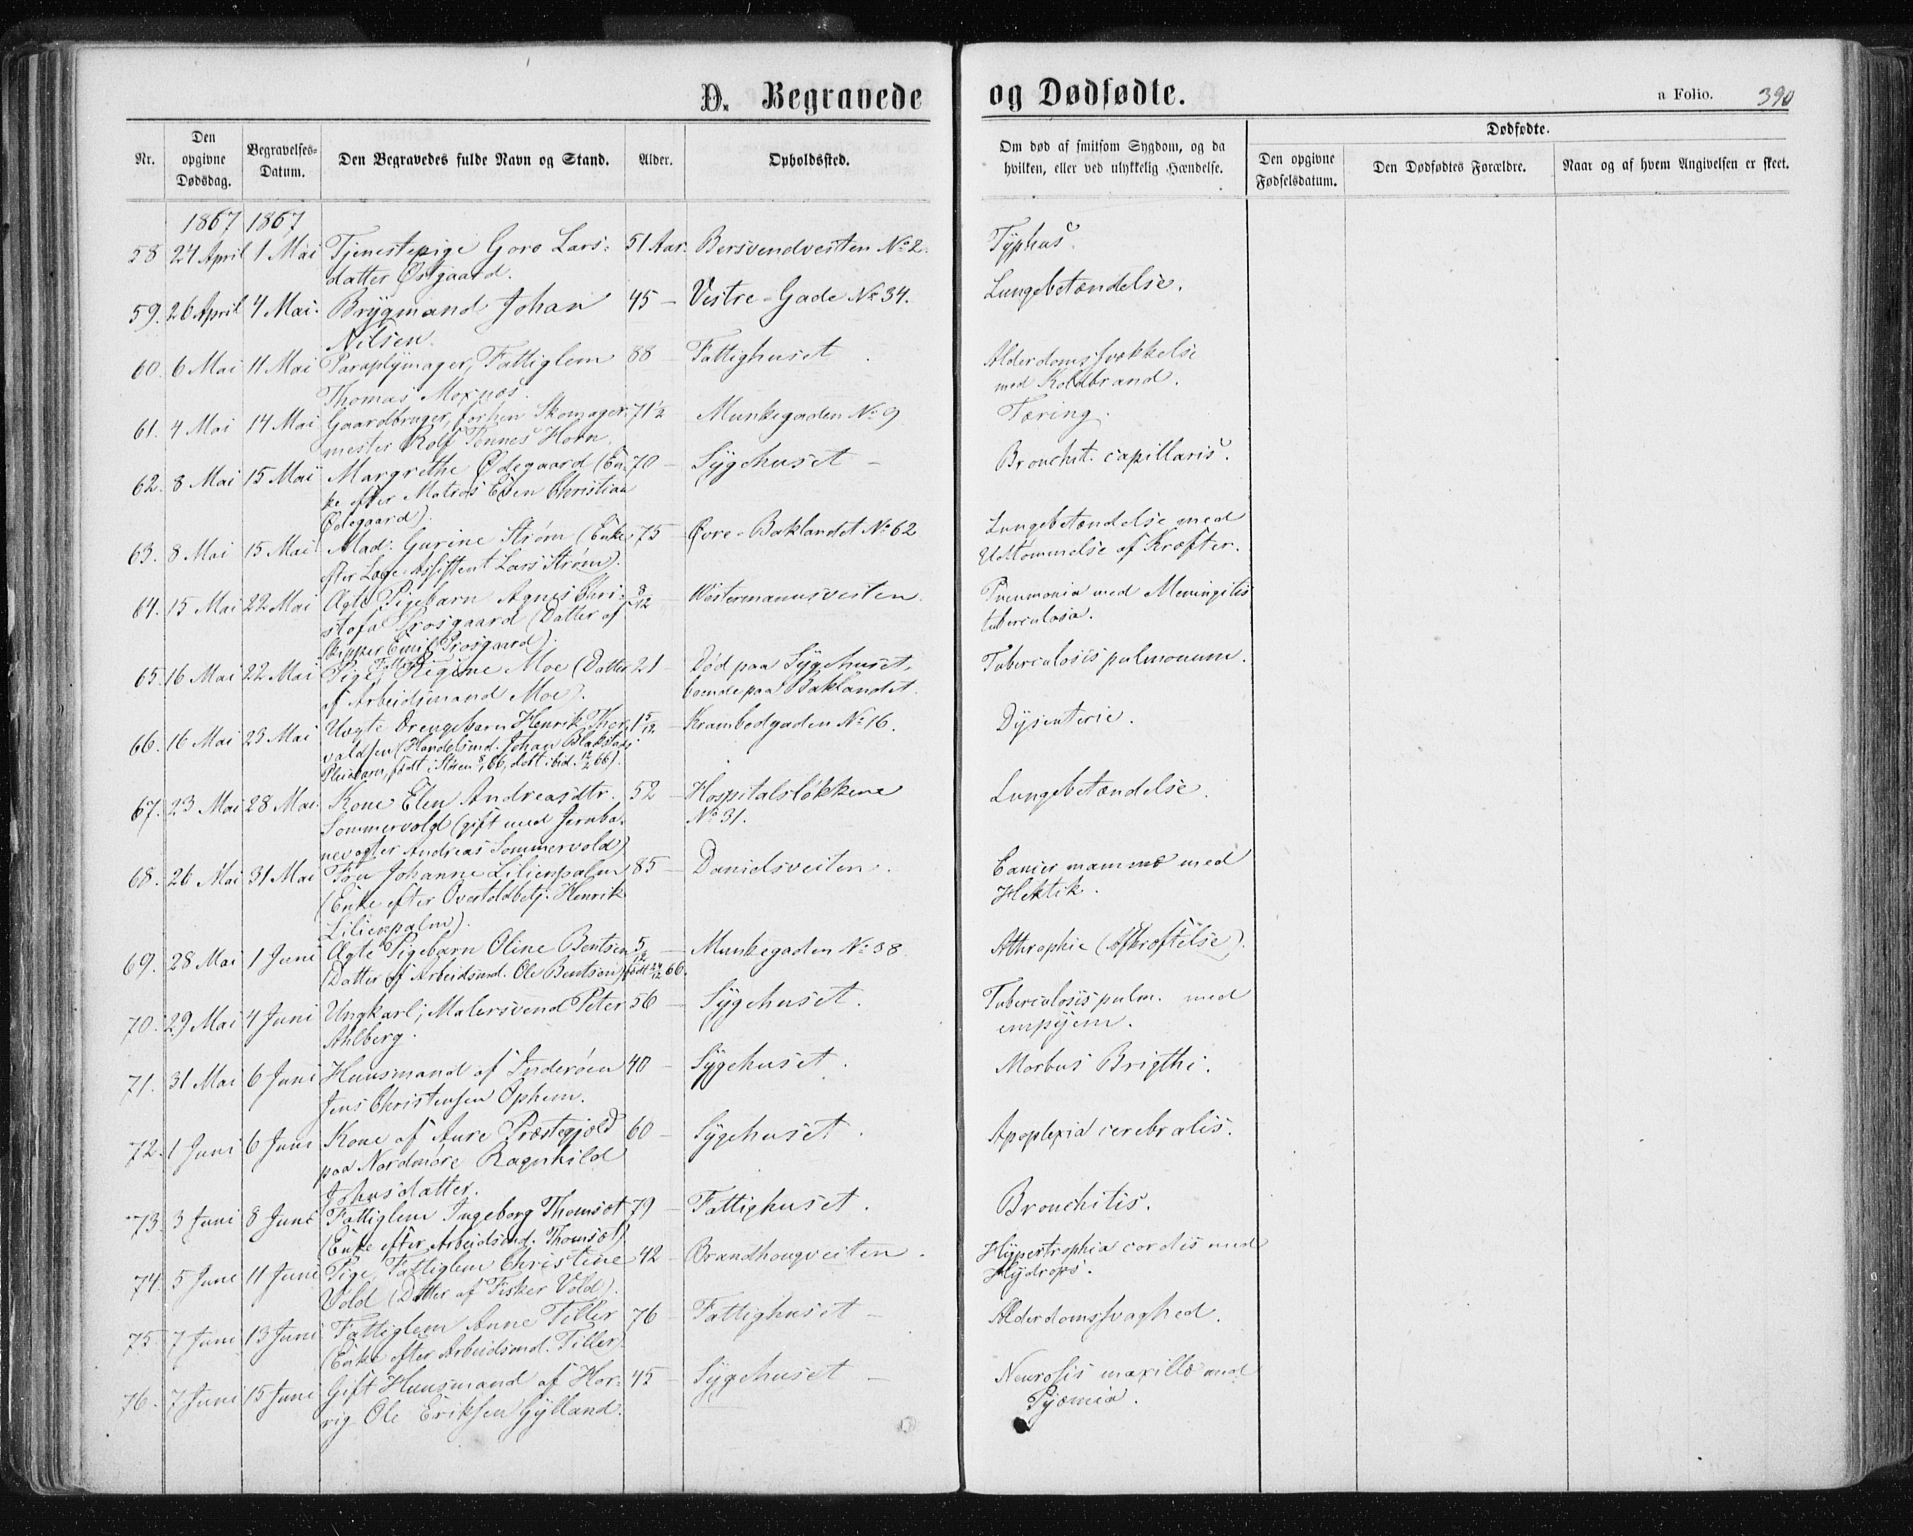 D. Begravede og Dødfødte. a Folio. 390
Nr. Den opgivne Dødsdag. Begravelses-Datum. Den Begravedes fulde Navn og Stand. Alder. Opholdssted. Om død af smitsom Sygdom, og da hvilken, eller ved ulykkelig Hændelse. Dødfødte. Den opgivne Fødselsdatum. Den Dødfødtes Forældre. Naar og af hvem Angivelsen er skeet.
1867 1867
58 24 April 1 Mai Tjenestepige Goro Lars- 51 Aar. Bersvendveiten No 2. Typhus.
datter Østgaard.
59. 26 April 4 Mai. Brygmand Johan 45 - Vestre-Gade No 34. Lungebetændelse.
Nilsen.
60. 6 Mai 11 Mai Paraplymager, Fattiglem 88 - Fattighuset. Alderdomssvækkelse
Thomas Moxnæs. med Koldbrand.
61. 4 Mai 14 Mai Gaardbruger, forhen Skomager- 71½ - Munkegaden No 9 Tæring.
mester Rolf Tønnes Horn.
62. 8 Mai 15 Mai Margrethe Ødegaard (En- 70 - Sygehuset - Bronchit. capillaris.
ke efter Matros Christian
Ødegaard).
63. 8 Mai 15 Mai Mad: Gurine Strøm (Enke 75 - Øvre-Baklandet No 62 Lungebetændelse med
efter Assistent Lars Strøm). Udtømmelse af Kræfter.
64. 15 Mai 22 Mai Ægte Pigebarn Agnes Chri- 8/12 - Westermannsveiten. Pneumonia med Meningitis
stofa Prosgaard (Datter af tuberculosa.
Skipper Emil Prosgaard).
65 16 Mai 22 Mai Pige, Regine Moe (Datter 21 - Død paa Sygehuset, Tuberculosis pulmonum.
af Arbeidsmand Moe). boende paa Baklandet.
66. 16 Mai 23 Mai Uægte Drengebarn Henrik Thor- 1 5/12 - Krambodgaden No 16. Dysenterie.
valdsen (Handelsmd. Johan Blakstads
Pleiebarn, født i Støren 66, døbt ibid. 66).
67. 23 Mai 28 Mai Kone Elen Andreasdtr. 52 - Hospitalsløkkene Lungebetændelse.
Sommervold (gift med Jernba- No 31.
nevogter Andreas Sommervold)
68. 26 Mai 31 Mai Fru Johanne Lilienpalm 85 - Danielsveiten. Cancer mammæ med
(Enke efter Overtoldbetj. Henrik Hektik.
Lilienpalm).
69. 28 Mai 1 Juni Ægte Pigebarn Oline Bentsen 5/12 - Munkegaden No 38. Athrophie (Afkræftelse).
(Datter af Arbeidsmd. Ole Bentsen) født 66.
70. 29 Mai 4 Juni Ungkarl, Malersvend Peter 56 - Sygehuset. Tuberculosis pulm. med
Ahlberg. empyem.
71. 31 Mai 6 Juni Huusmand af Inderøen 40 - Sygehuset. Morbus Brigthi.
Jens Christensen Ophem.
72. 1 Juni 6 Juni Kone af Aure Præstegjeld 60 - Sygehuset. Apoplexia cerebralis.
paa Nordmøre Ragnhild
Johnsdatter.
73. 3 Juni 8 Juni Fattiglem Ingeborg Thomsæt 79 - Fattighuset. Bronchitis.
(Enke efter Arbeidsmd. Thomsæt).
74. 5 Juni 11 Juni Pige, Fattiglem Christine 42 - Brandhougveiten. Hypertrophia cordis med
Vold (Datter af Fisker Vold). Hydrops.
75. 7 Juni 13 Juni Fattiglem Anne Tiller 76 - Fattighuset - Alderdomssvaghed.
(Enke efter Arbeidsmd. Tiller).
76. 7 Juni 15 Juni Gift Huusmand af Hor- 45 - Sygehuset - maxillæ med
rig Ole Eriksen Gylland. Pyæmia.